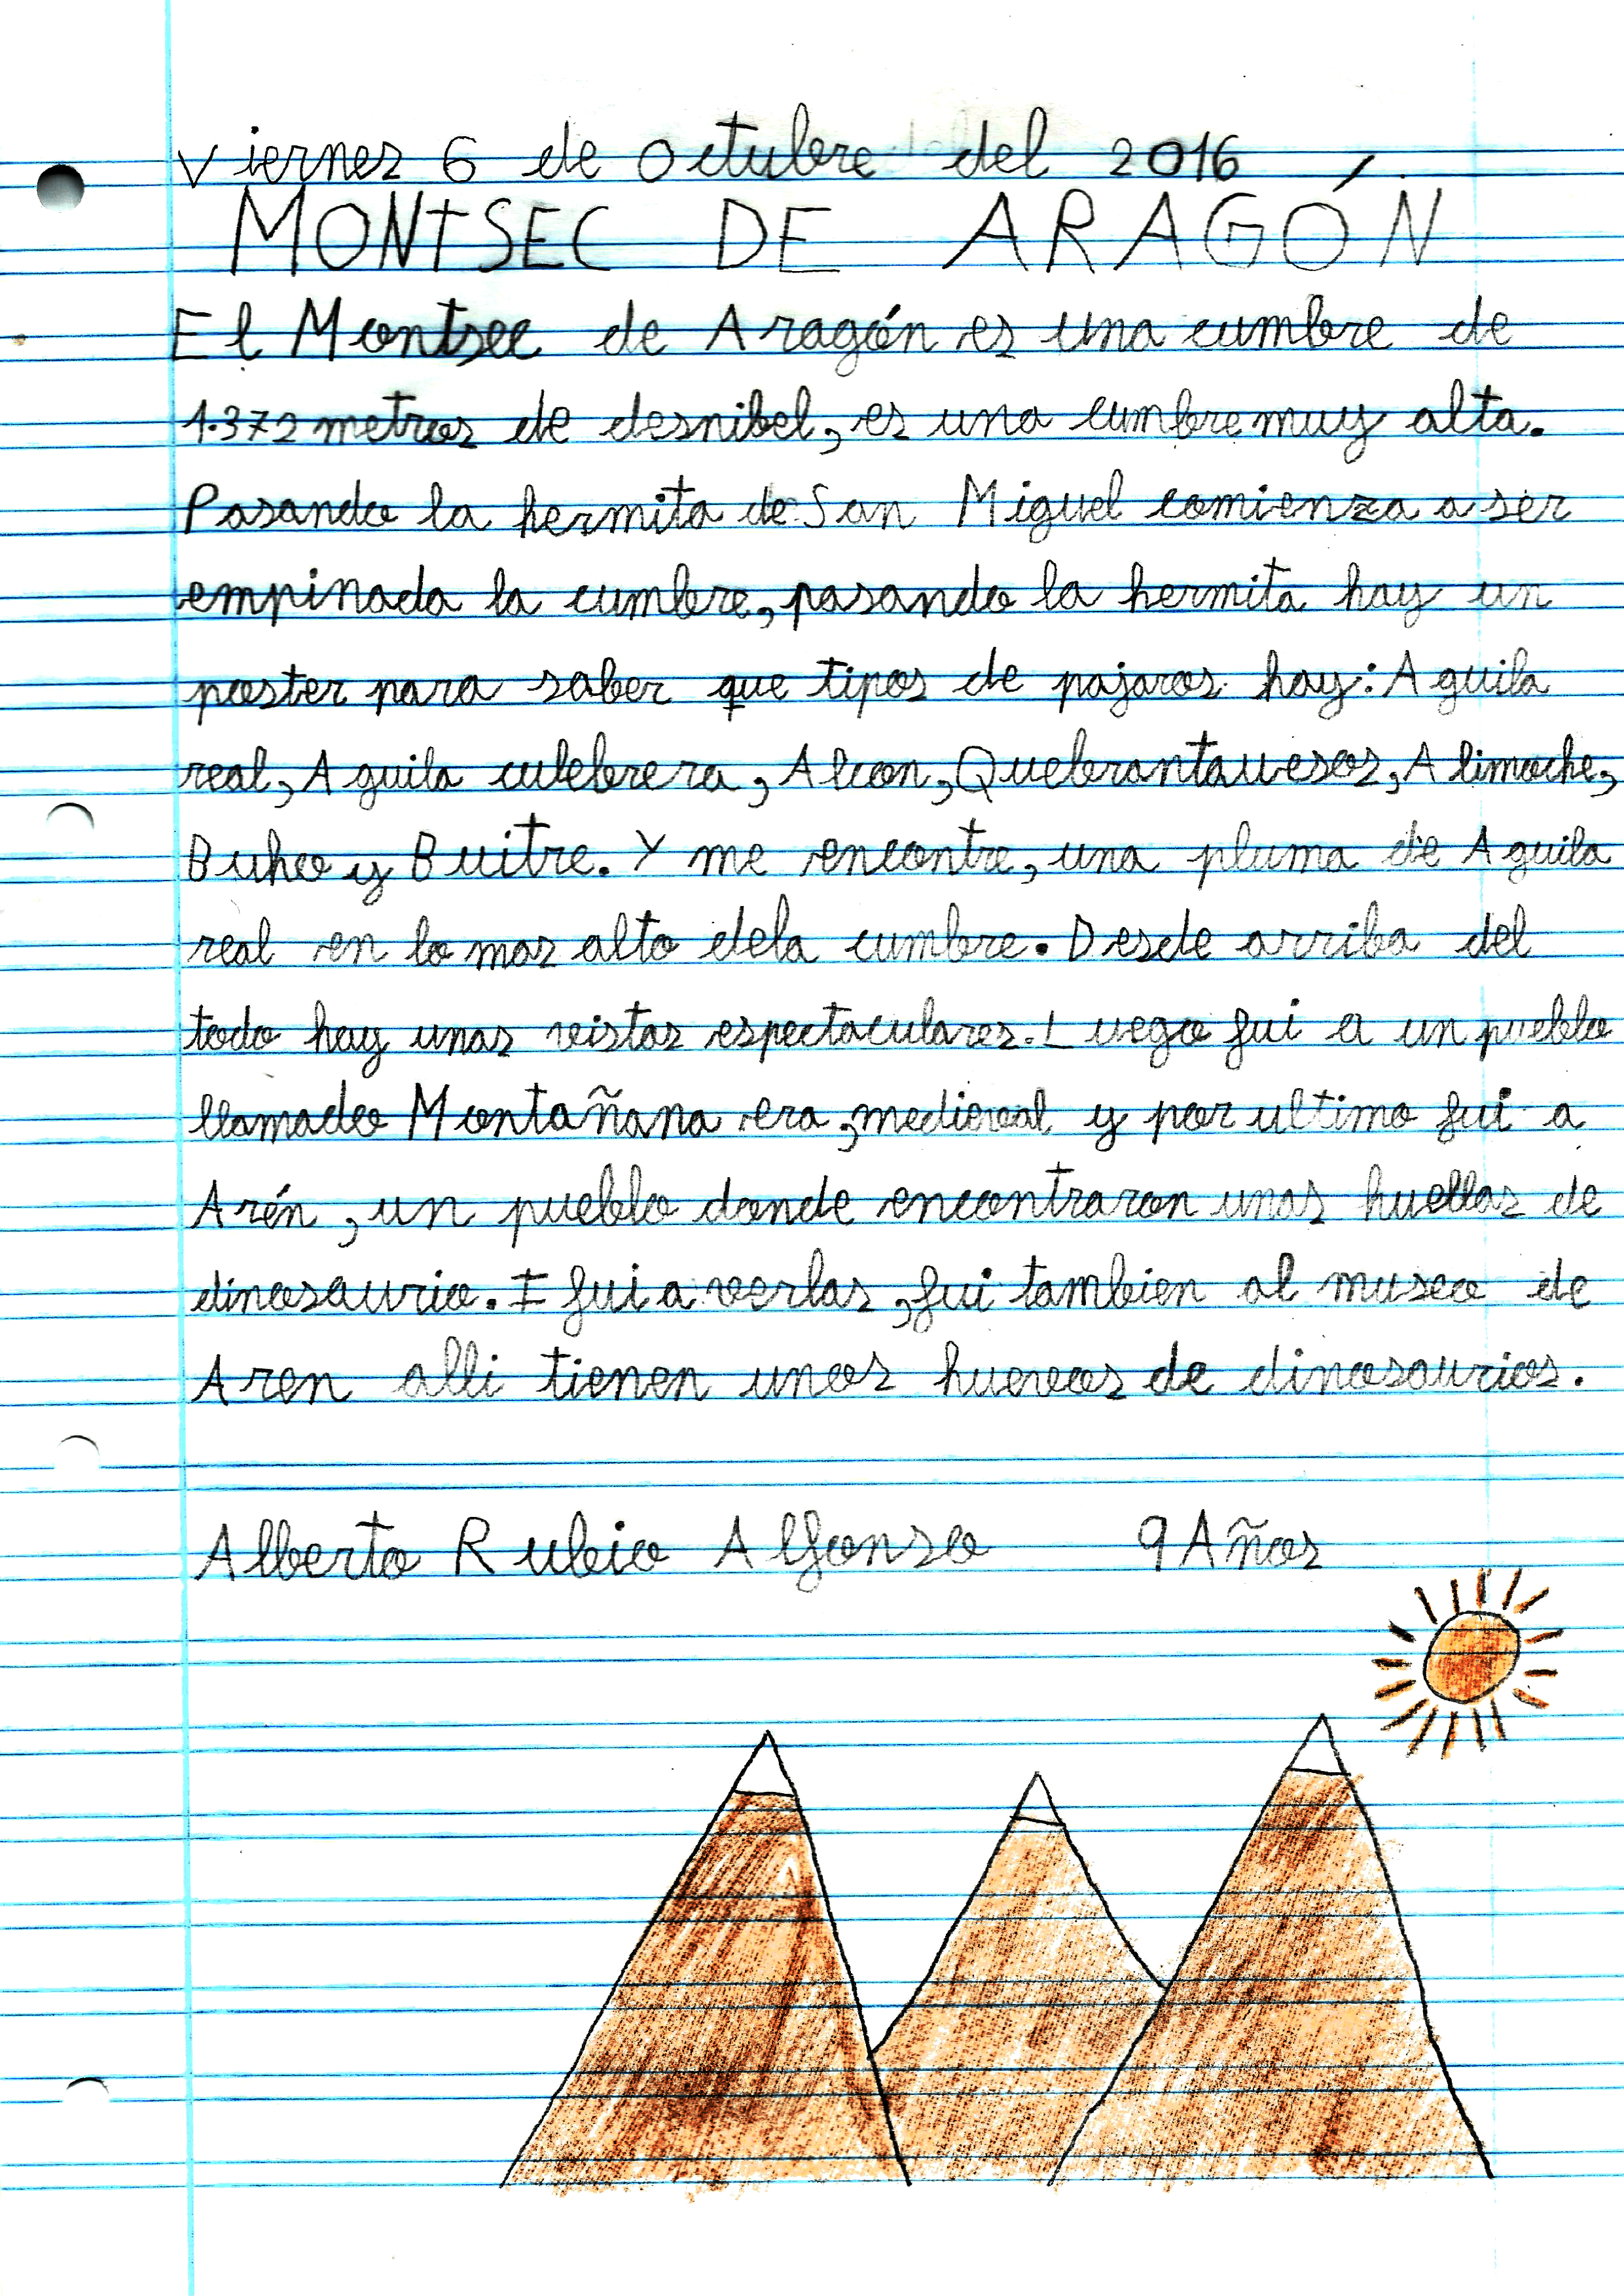 Viernes 6 de Octubre del 2016
MONTSEC DE ARAGÓN
El Montsec de Aragón es una cumbre de
1.372 metros de desnibel, es una cumbre muy alta.
Pasando la hermita de San Miguel comienza a ser
empinada la cumbre, pasando la hermita hay un
poster para saber que tipos de pajaros hay: Aguila
real, Aguila culebrera, Alcon, Quebrantauesos, Alimoche,
Buho y Buitre. Y me encontre, una pluma de Aguila
real en lo mas alto dela cumbre. Desde arriba del
todo hay unas vistas espectaculares. Luego fui a un pueblo
llamado Montañana era, medieval y por ultimo fui a
Arén, un pueblo donde encontraron unas huellas de
dinosaurio. I fui a verlas, fui tambien al museo de
Aren alli tienen unos huevos de dinosaurios.
Alberto Rubio Alfonso 9 Años